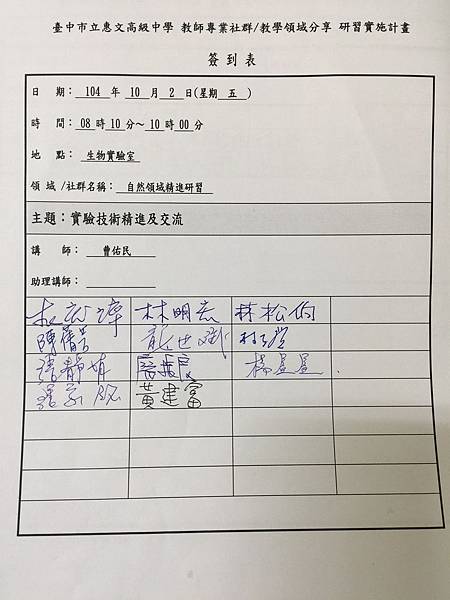 臺中市立惠文高級中學 教師專業社群/教學領域分享 研習實施計畫
簽到表
日 期: 104 年 10 月 2 日(星期 五 )
時 間: 08 時 10 分~ 10 時 00 分
地 點: 生物實驗室
領域/社群名稱: 自然領域精進研習
主題:實驗技術精進及交流
講 師: 曹佑民
助理講師:
林明宏 林松伯
黃建富